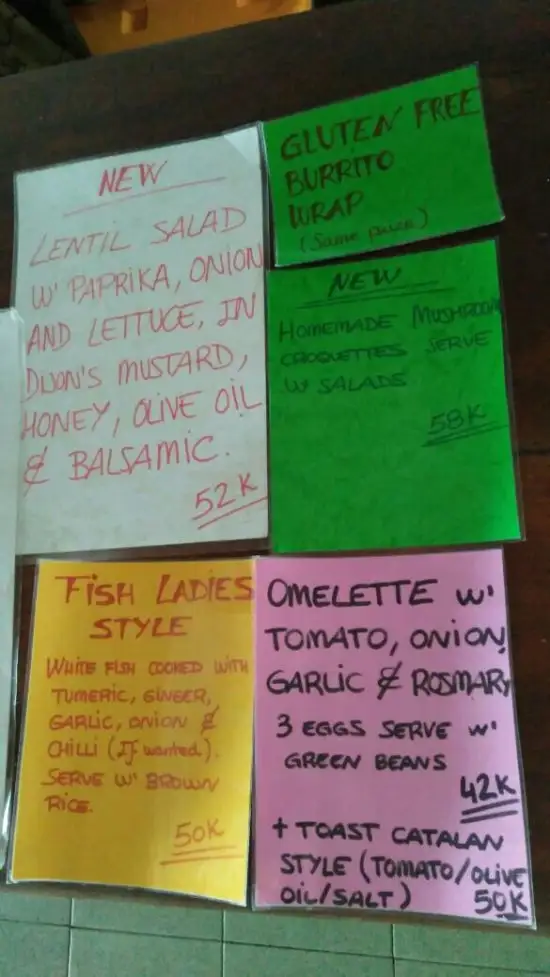 NEW
LENTIL SALAD
W' PAPRIKA, ONION
AND LETTUCE, IN
DIJON'S MUSTARD,
HONEY, OLIVE OIL
& BALSAMIC.
52K
GLUTEN FREE
BURRITO
WRAP
(Same price)
NEW
HOMEMADE MUSHROOM
CROQUETTES SERVE
W' SALADS
58K
FISH LADIES
STYLE
WHITE FISH COOKED WITH
TUMERIC, GINGER,
GARLIC, ONION &
CHILLI (If wanted).
SERVE W' BROWN
RICE.
50K
OMELETTE W'
TOMATO, ONION,
GARLIC & ROSMARY
3 EGGS SERVE W'
GREEN BEANS
42K
+ TOAST CATALAN
STYLE (TOMATO/OLIVE
OIL/SALT) 50K